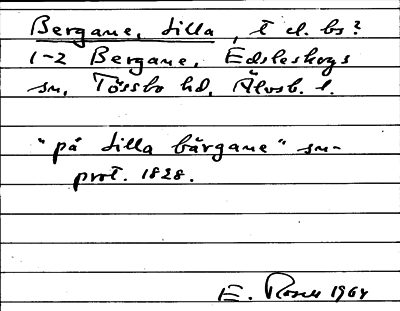 Bergane, Lilla, t el. bs?
1-2 Bergane, Edsleskogs
sn, Tössbo hd, Älvsb. l.
"på Lilla bärgane" sn-
prot. 1828.
E. Rosell 1964